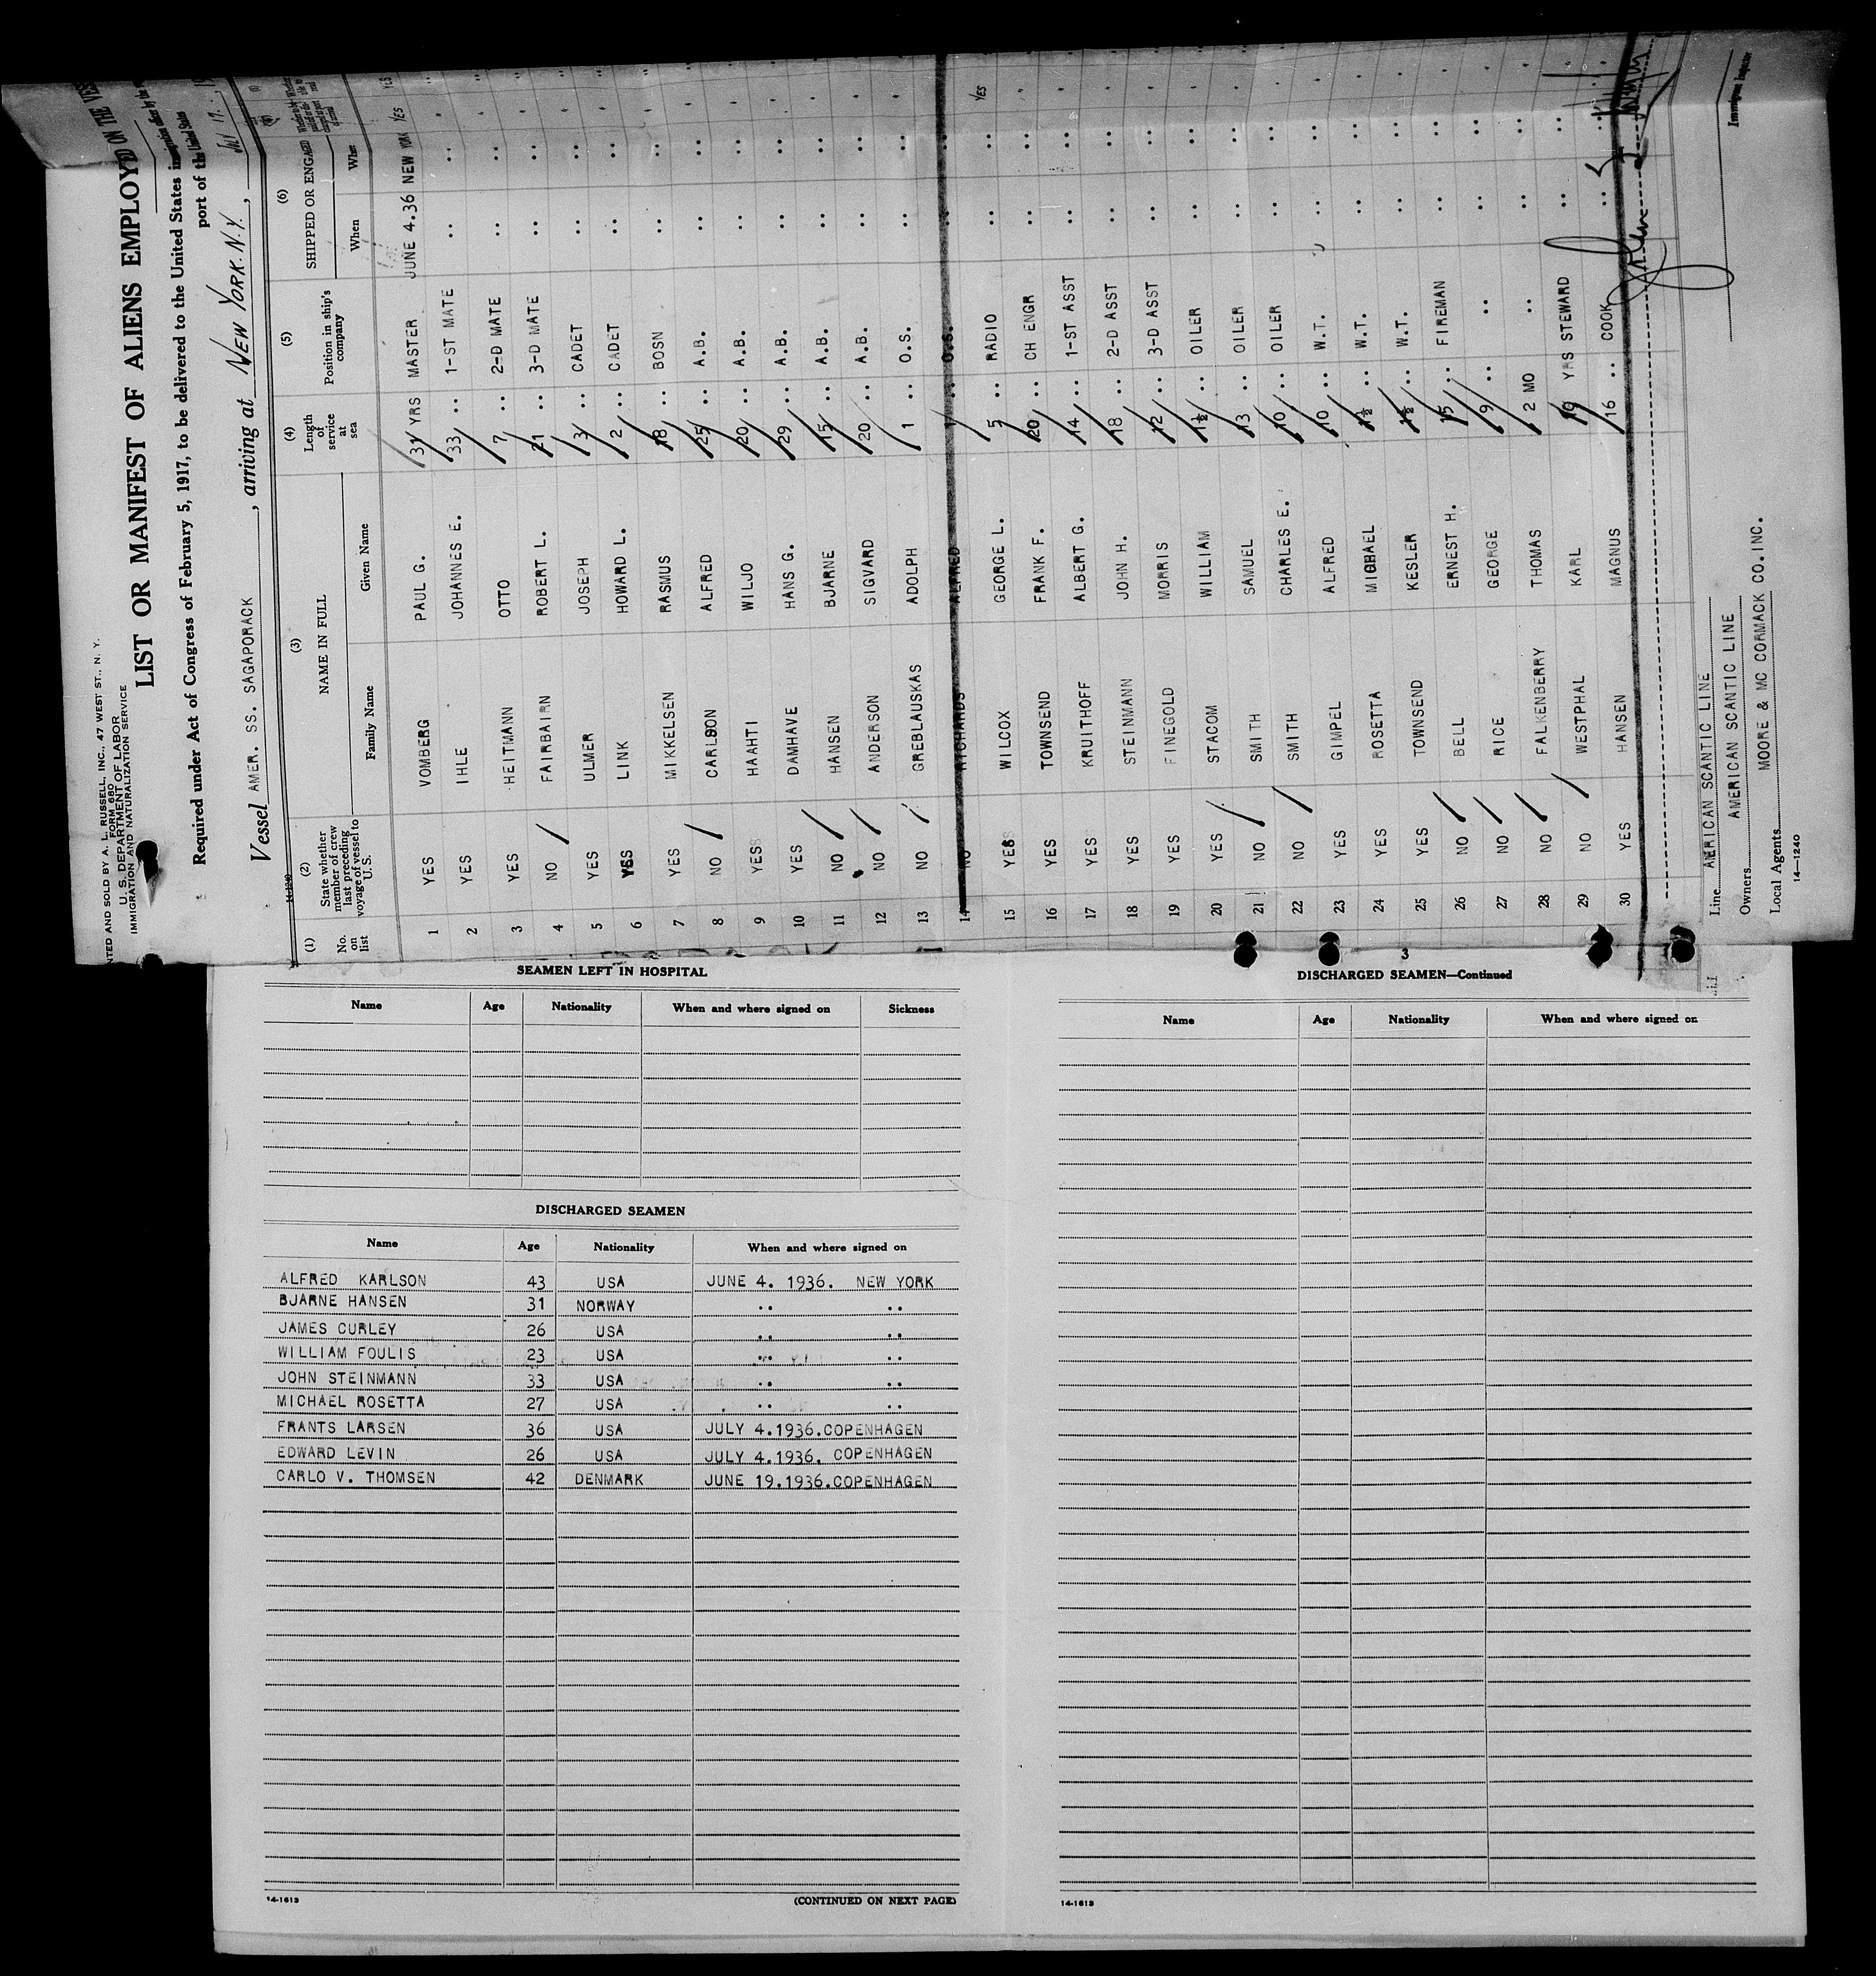 NTED AND SOLD BY A. L. RUSSELL, INC., 47 WEST ST., N. Y.
FORM 680
U. S. DEPARTMENT OF LABOR
IMMIGRATION AND NATURALIZATION SERVICE
LIST OR MANIFEST OF ALIENS EMPLOYED ON THE VES
Required under Act of Congress of February 5, 1917, to be delivered to the United States
port of the United States
Vessel AMER. SS. SAGAPORACK, arriving at NEW YORK. N.Y.,
(1) (2) (3) (4) (5) (6)
No. on list State whether member of crew last preceding voyage of vessel to U.S. NAME IN FULL Length of service at sea Position in ship's company SHIPPED OR ENGAG
Family Name Given Name When Whe
1 YES VOMBERG PAUL G. 31 YRS MASTER JUNE 4.36 NEW YORK YES YES
2 YES IHLE JOHANNES E. 33 .. 1-ST MATE .. ..
3 YES HEITMANN OTTO 7 .. 2-D MATE .. ..
4 NO FAIRBAIRN ROBERT L. 21 .. 3-D MATE .. ..
5 YES ULMER JOSEPH 3 .. CADET .. ..
6 YES LINK HOWARD L. 2 .. CADET .. ..
7 YES MIKKELSEN RASMUS 18 .. BOSN .. ..
8 NO CARLSON ALFRED 25 .. A.B. .. ..
9 YES HAAHTI WILJO 20 .. A.B. .. ..
10 YES DAMHAVE HANS G. 29 .. A.B. .. ..
11 NO HANSEN BJARNE 15 .. A.B. .. ..
12 NO ANDERSON SIGVARD 20 .. A.B. .. ..
13 NO GREBLAUSKAS ADOLPH 1 .. O.S. .. ..
14 NO RICHARDS ALFRED 1 .. O.S. .. ..
15 YES WILCOX GEORGE L. 5 .. RADIO .. .. YES
16 YES TOWNSEND FRANK F. 20 .. CH ENGR .. ..
17 YES KRUITHOFF ALBERT G. 14 .. 1-ST ASST .. ..
18 YES STEINMANN JOHN H. 18 .. 2-D ASST .. ..
19 YES FINEGOLD MORRIS 12 .. 3-D ASST .. ..
20 YES STACOM WILLIAM 1½ .. OILER .. ..
21 NO SMITH SAMUEL 13 .. OILER .. ..
22 NO SMITH CHARLES E. 10 .. OILER .. ..
23 YES GIMPEL ALFRED 10 .. W.T. .. ..
24 YES ROSETTA MICHAEL 1½ .. W.T. .. ..
25 YES TOWNSEND KESLER 1½ .. W.T. .. ..
26 NO BELL ERNEST H. 15 .. FIREMAN .. ..
27 NO RICE GEORGE 9 .. .. .. ..
28 NO FALKENBERRY THOMAS 2 MO .. .. ..
29 NO WESTPHAL KARL 19 YRS STEWARD .. ..
30 YES HANSEN MAGNUS 16 .. COOK .. ..
Line AMERICAN SCANTIC LINE
Owners AMERICAN SCANTIC LINE
Local Agents MOORE & MC CORMACK CO.INC.
Immigrant Inspector
14—1240
SEAMEN LEFT IN HOSPITAL
Name Age Nationality When and where signed on Sickness
DISCHARGED SEAMEN
Name Age Nationality When and where signed on
ALFRED KARLSON 43 USA JUNE 4. 1936. NEW YORK
BJARNE HANSEN 31 NORWAY .. ..
JAMES CURLEY 26 USA .. ..
WILLIAM FOULIS 23 USA .. ..
JOHN STEINMANN 33 USA .. ..
MICHAEL ROSETTA 27 USA .. ..
FRANTS LARSEN 36 USA JULY 4.1936.COPENHAGEN
EDWARD LEVIN 26 USA JULY 4.1936. COPENHAGEN
CARLO V. THOMSEN 42 DENMARK JUNE 19.1936.COPENHAGEN
14-1613
(CONTINUED ON NEXT PAGE)
3
DISCHARGED SEAMEN—Continued
Name Age Nationality When and where signed on
14-1613